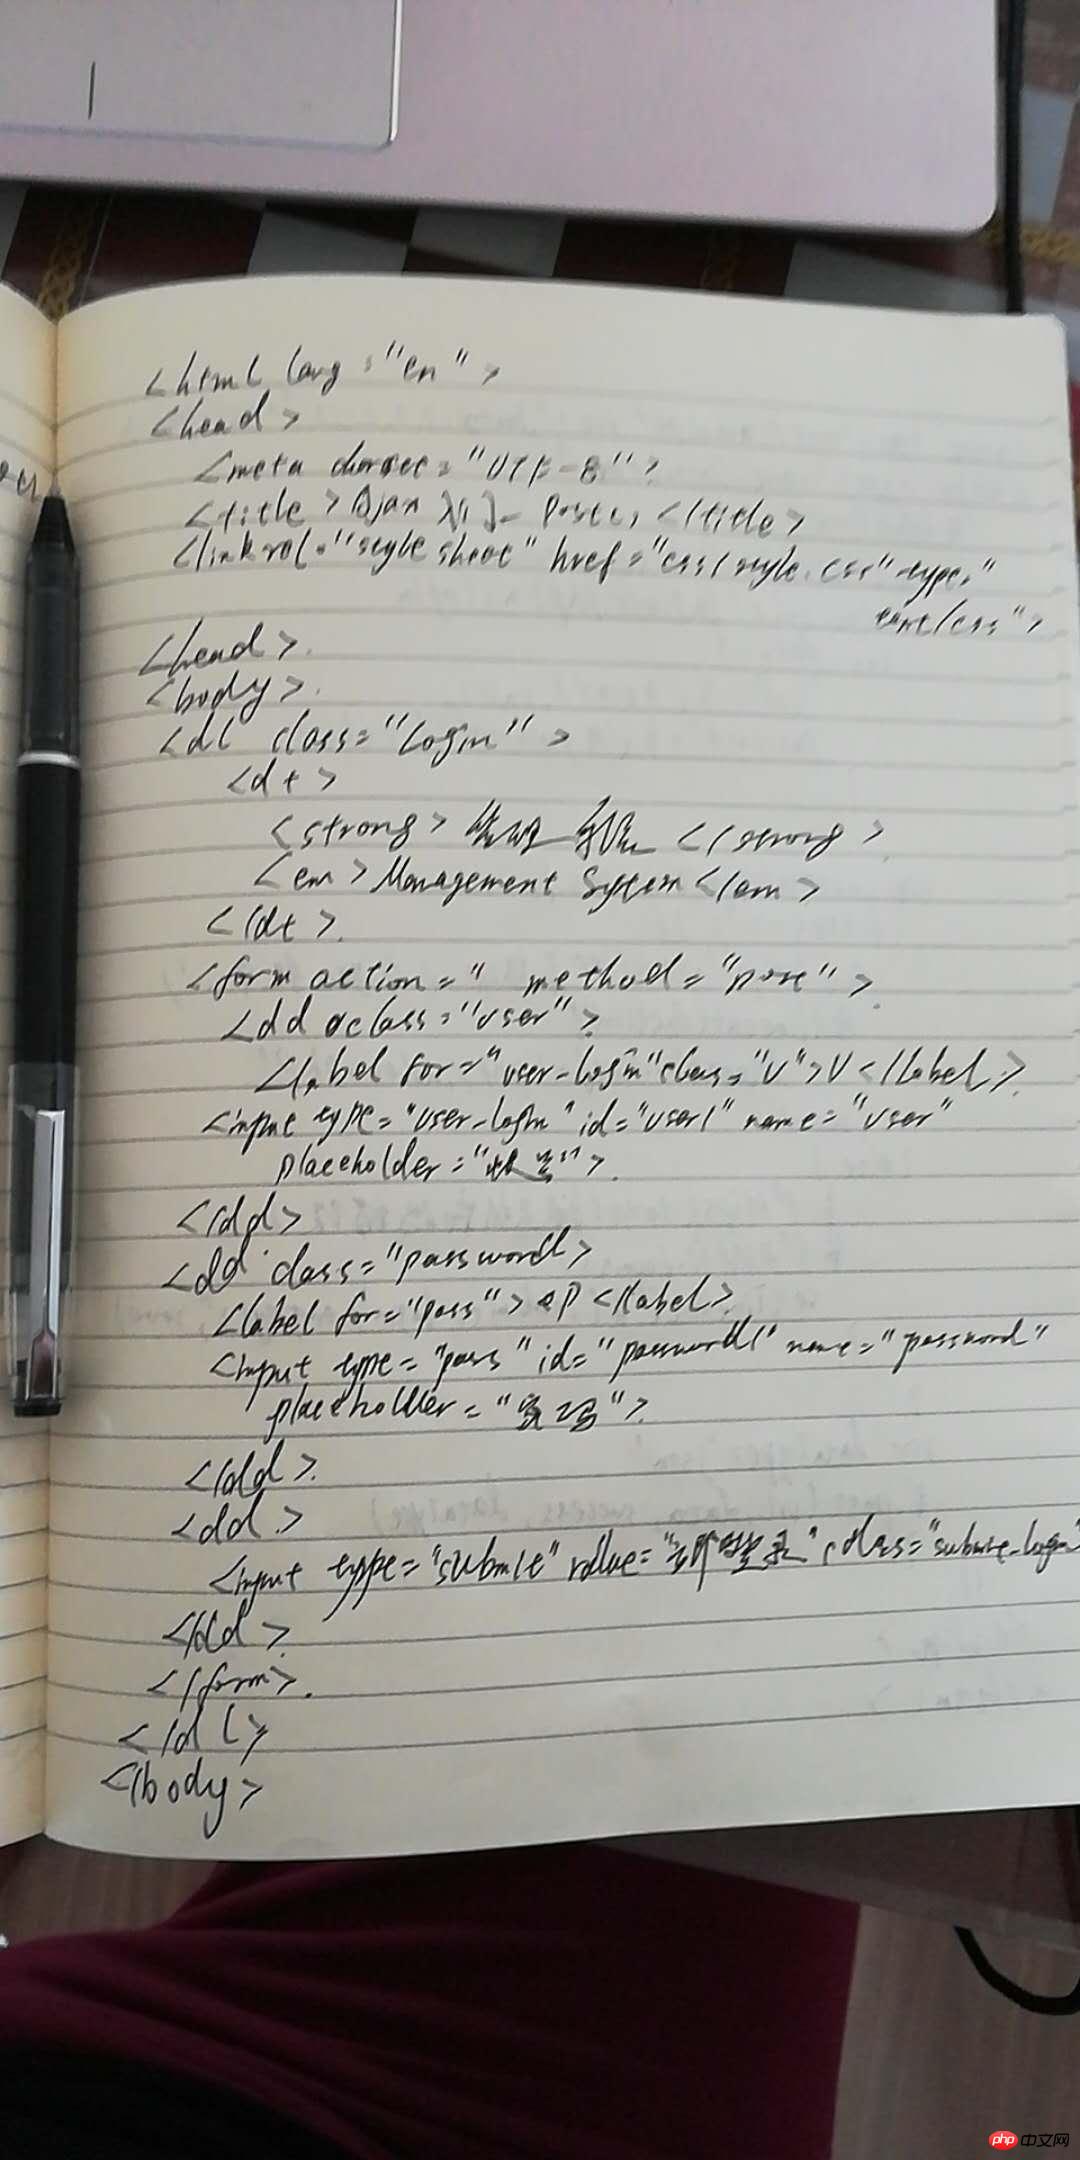 <html lang="en">
<head>
<meta charset="UTF-8">
<title>Ajax 入门 </title>
<link rel="stylesheet" href="css/style.css" type="
text/css">
<head>
<body>
<dl class="Login">
<dt>
<strong> </strong>
<em>Management System</em>
</dt>
<form action=" method="post">
<dd class="user">
<label for="user-login" class="U">U</label>
<input type="user-login" id="user1" name="user"
placeholder="账号">
</dd>
<dd class="password>
<label for="pass">P</label>
<input type="pass" id="password1" name="password"
placeholder="密码">
</dd>
<dd>
<input type="submit" value="立即登录" class="submit-login"
</dd>
</form>
</dl>
</body>
php 中文网